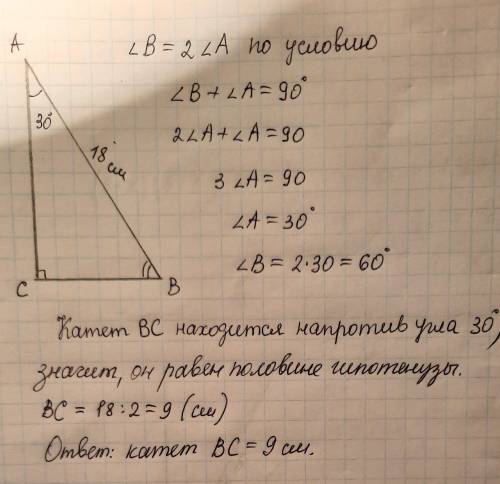 A
30°
18 см
C
B
∠B = 2∠A по условию
∠B + ∠A = 90°
2∠A + ∠A = 90
3∠A = 90
∠A = 30°
∠B = 2·30 = 60°
Катет BC находится напротив угла 30°,
значит, он равен половине гипотенузы.
BC = 18 : 2 = 9 (см)
Ответ: катет BC = 9 см.